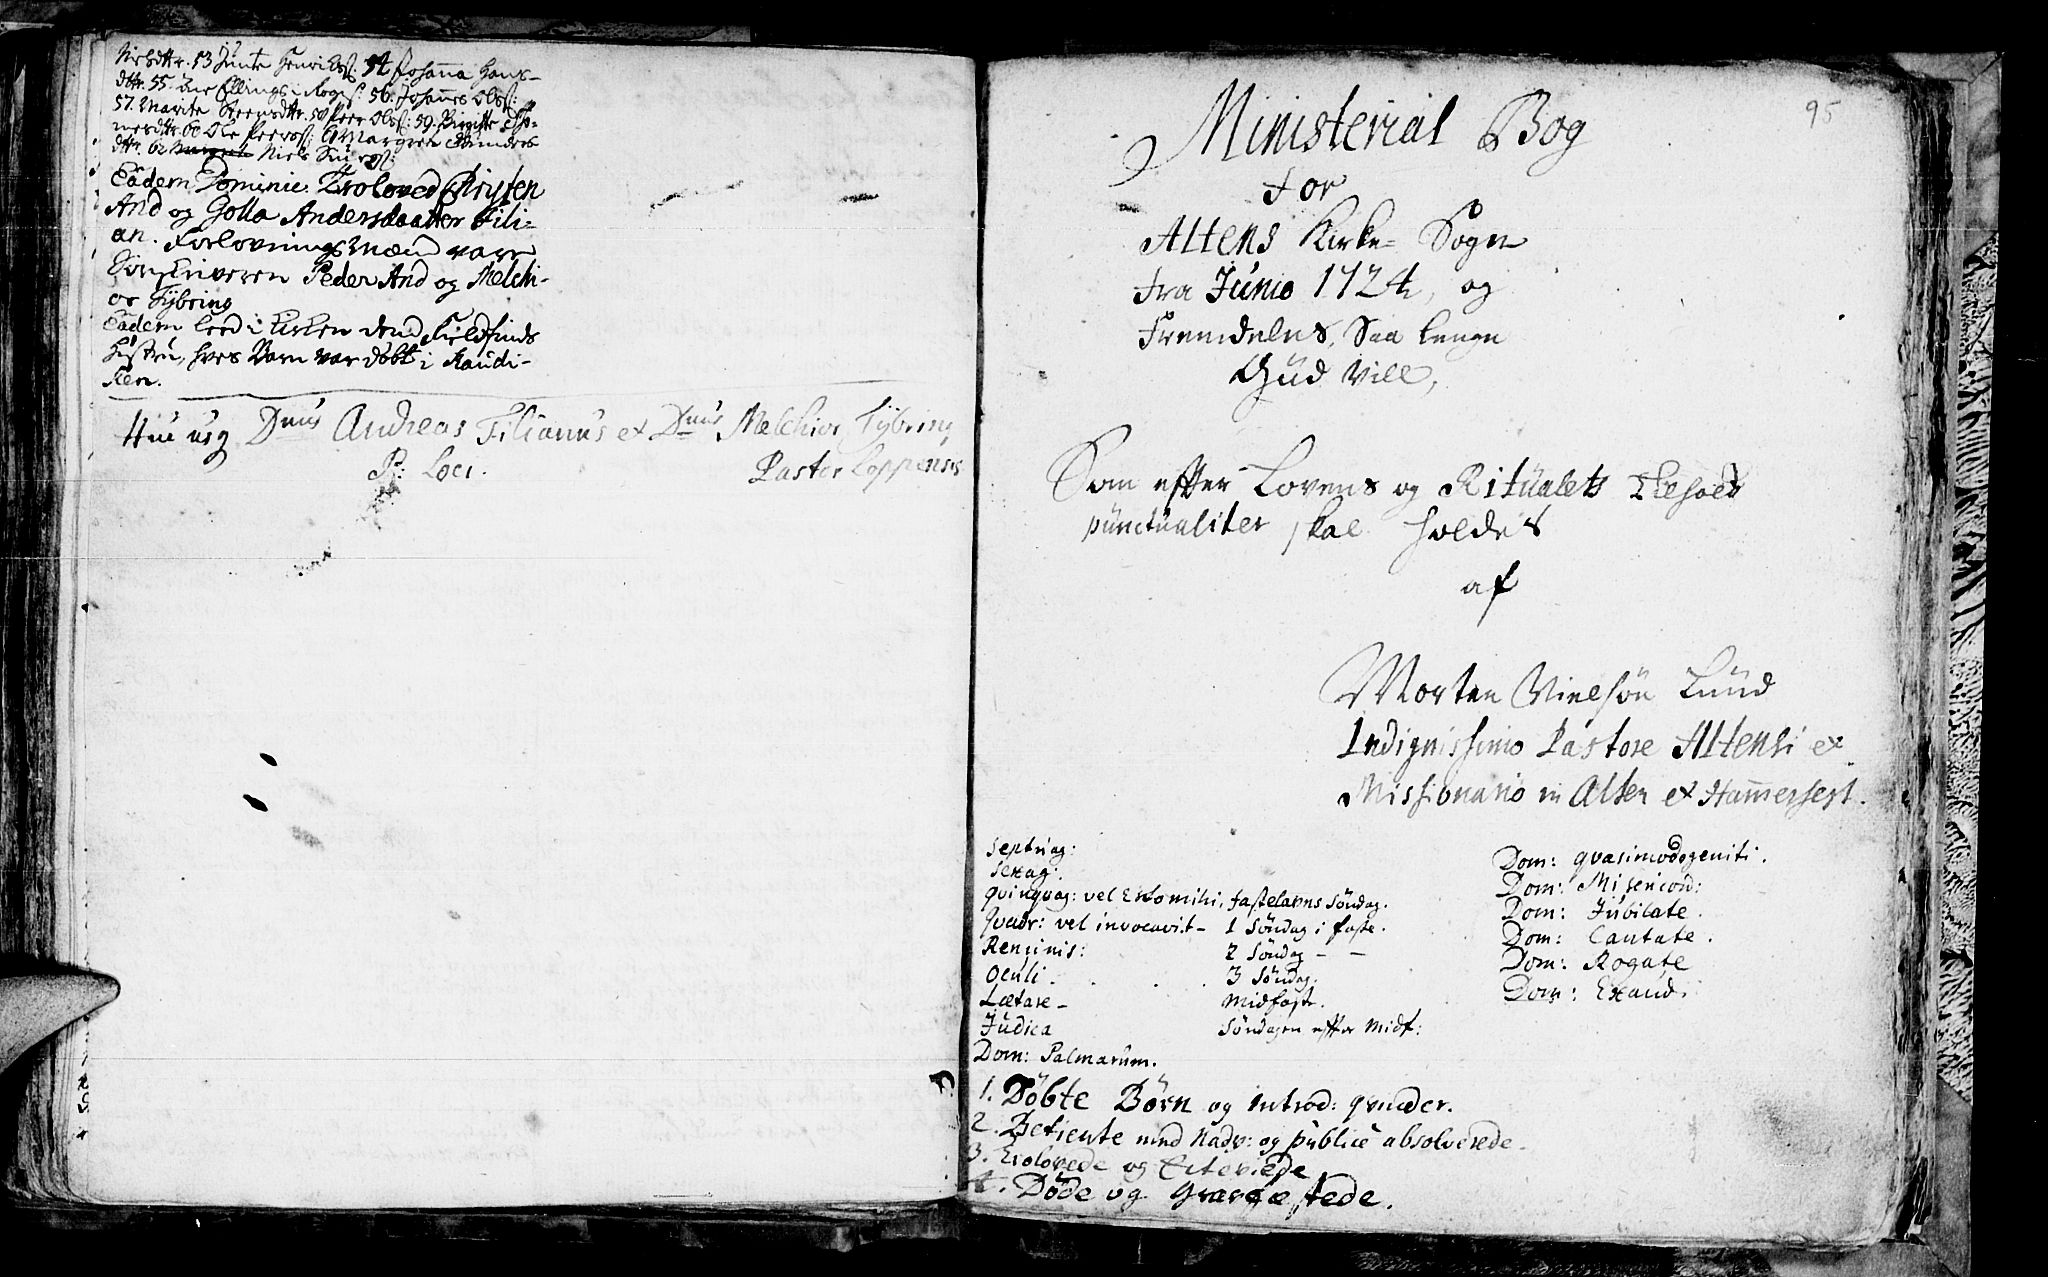 Nielsdttr. 53 Hendrichs: 54 Johanna Hans-
dttr. 55. Iver Ellings: 56. Johannes Ols:
57. Marite dttr. 58 Peer Ols: 59. Birgitte
dttr. 60 Ole Peers: 61 Margrete
dttr. 62 Niels
Eadem Dominic. Troloved Christen
And og Golla Andersdaatter Fili-
an. Forlovnings Mænd vare
Sorenskriveren Peder And og Melchi-
or Fÿbring
Eadem leed i Kirken dend Fieldfinds
Høstru, hves Barn var døbt i Kaudi-
ken.
Huc usq Dnus Andreas Filianus et Dnus Melchior Fÿbring
P: Loci. Pastor Loppensis
95
Ministerial Bog
For
Altens Kirke-Sogn
Fra Junio 1724, og
Fremdeles, Saa lenge
Gud vill,
Som effter Lovens og Ritualets
punctualiter skal holdes
af
Morten Nielsøn Lund
Indignissimo Pastore Altensi et
Missionario in Alten et Hamerfest.
Septuag:
Sexag:
Qvinqvag: vel Estomihi, Fastelavns Søndag.
Qvadr: vel invocavit - 1 Søndag i faste.
Reminis: 2 Søndag - -
Oculi . . . 3 Søndag.
Lætare - Midfaste.
Judica Søndagen effter Midf:
Dom: Palmarum.
Dom: qvasimodogeniti.
Dom: Misericord:
Dom: Jubilate.
Dom: Cantate.
Dom: Rogate
Dom: Exaudi
1. Døbte Børn og introd: qvinder.
2. Betiente med Nadv: og publice absolverede.
3. Trolovede og Ectevied e
4. Døde og Grafæstede.